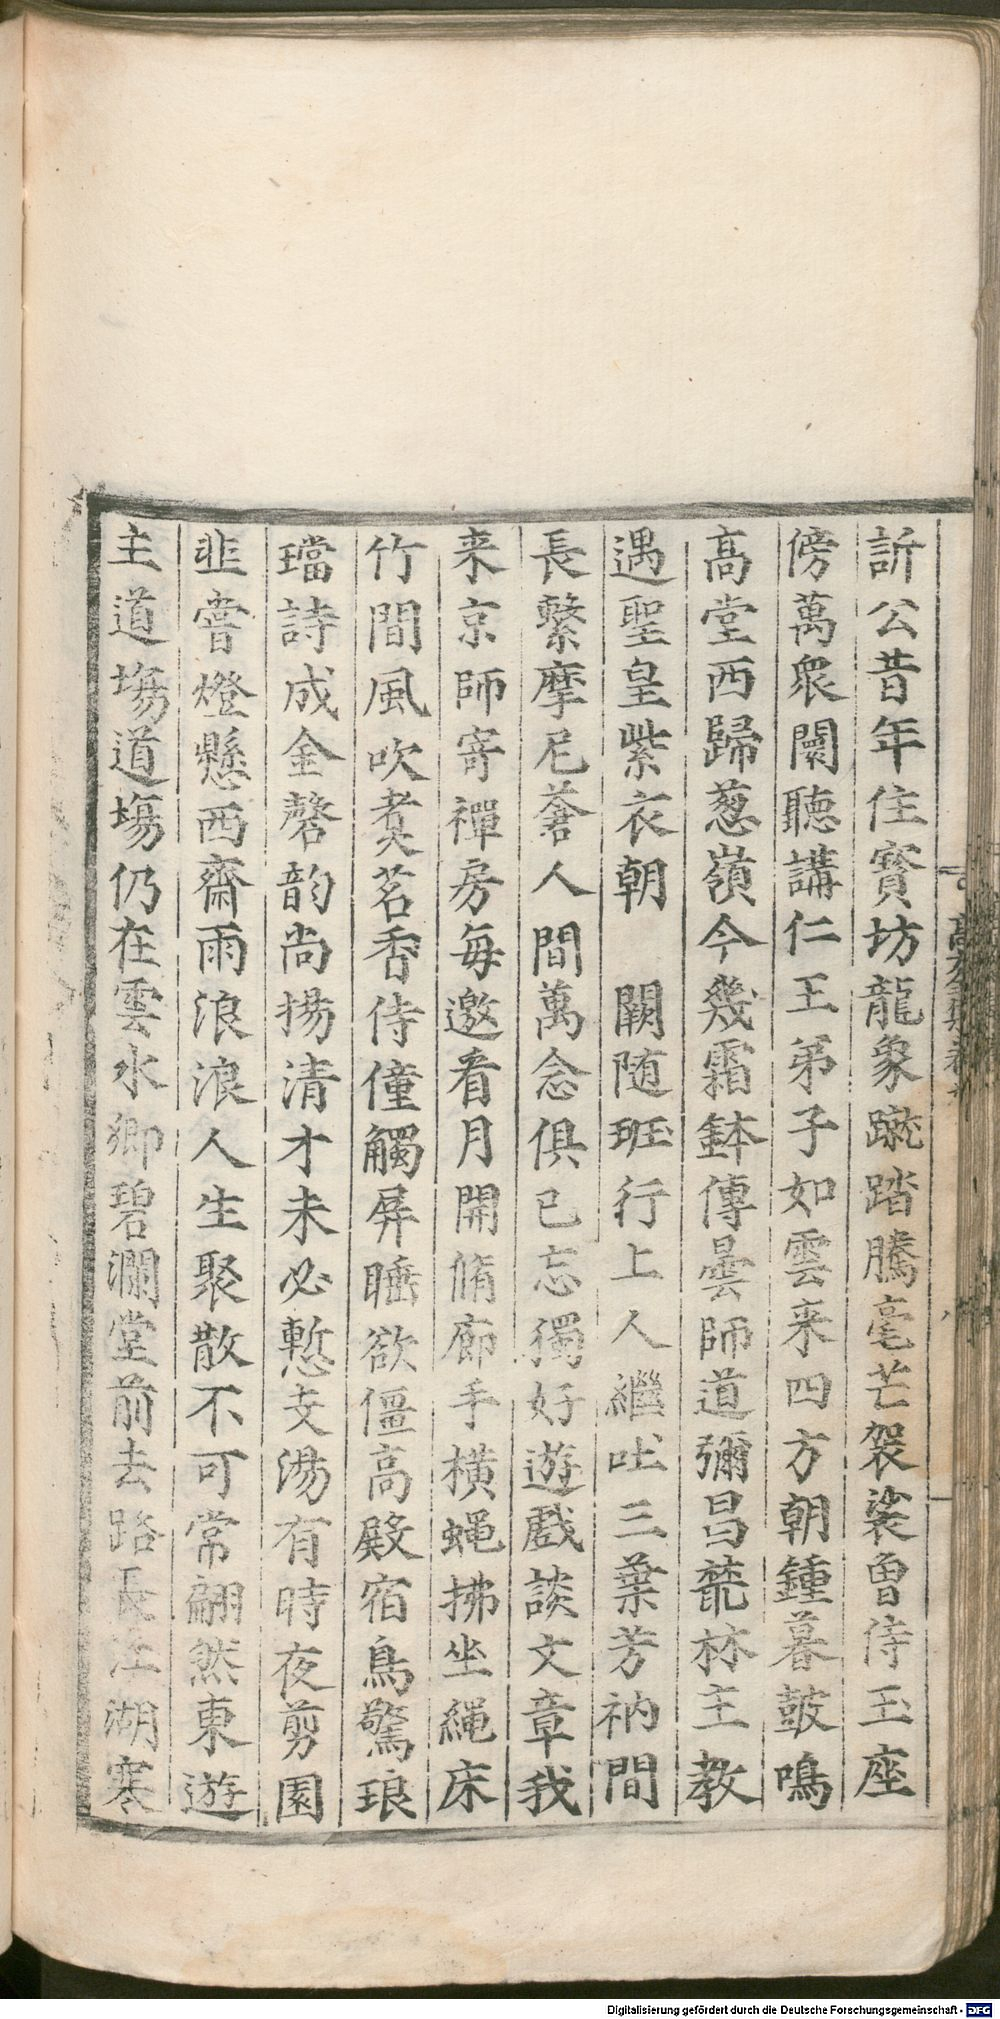 訢公昔年住寳坊龍象蹴踏騰毫芒袈裟曽侍玉座
傍萬衆闤聽講仁王弟子如雲来四方朝鍾暮皷鳴
高堂西歸葱嶺今幾霜鉢傳曇師道彌昌蓗林主教
遇聖皇紫衣朝　闕随班行上人繼吐三葉芳衲間
長繫摩尼蒼人間萬念俱已忘獨好遊戲談文章我
来京師寄禪房每邀看月開脩廊手橫蝇拂坐繩床
竹間風吹煑茗香侍僮觸屏睡欲僵高殿宿鳥驚琅
璫詩成金磬韵尚揚清才未必慙支湯有時夜剪園
韭甞燈懸西齋雨浪浪人生聚散不可常翩然東遊
主道塲道塲仍在雲水鄉碧瀾堂前去路長江湖寒
Digitalisierung gefördert durch die Deutsche Forschungsgemeinschaft - DFG